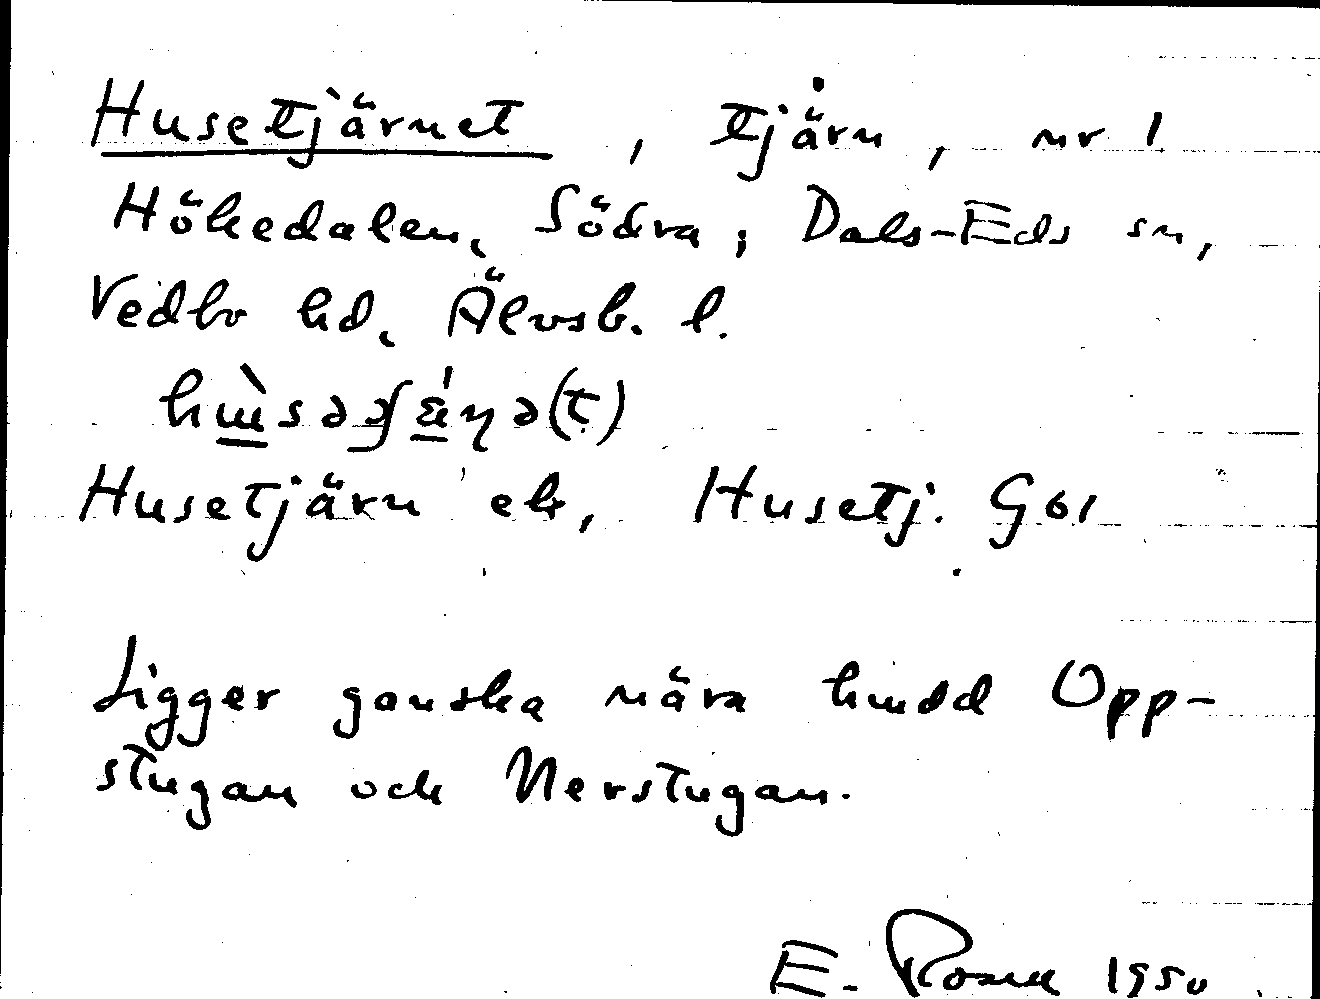 Husetjärnet, tjärn, nr 1
Hökedalen, Södra, Dals-Eds sn,
Vedbo hd, Älvsb. l.
Husetjärn ek, Husetj. G61
Ligger ganska nära hmdd Opp-
stugan och Nerstugan.
E. Rosell 1950